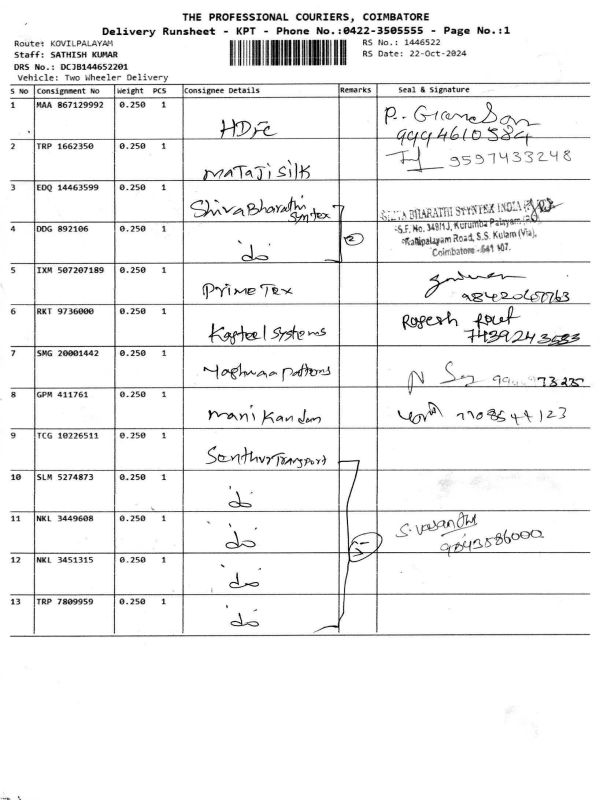 THE PROFESSIONAL COURIERS, COIMBATORE
Delivery Runsheet - KPT - Phone No.:0422-3505555 - Page No.:1
Route: KOVILPALAYAM RS No.: 1446522
Staff: SATHISH KUMAR RS Date: 22-Oct-2024
DRS No.: DCJB144652201
Vehicle: Two Wheeler Delivery
S No Consignment No Weight PCS Consignee Details Remarks Seal & Signature
1 MAA 867129992 0.250 1 HDFC P.
9994610584
2 TRP 1662350 0.250 1 MATAJI SILK 9597433248
3 EDQ 14463599 0.250 1 Shiva Bharathi Syntex BHARATHI SYNTEX INDIA
S.F. No. 349/1J, Kurumba Palayam
4 DDG 892106 0.250 1 do 2 Kalipalayam Road, S.S. Kulam (Via),
Coimbatore - 641 107.
5 IXM 507207189 0.250 1 Prime Tex
6 RKT 9736000 0.250 1 Kasteel Systems Rogesh
7439243583
7 SMG 20001442 0.250 1 patterns
8 GPM 411761 0.250 1 Mani Kandan 7708544123
9 TCG 10226511 0.250 1 Senthur Transport
10 SLM 5274873 0.250 1 do
11 NKL 3449608 0.250 1 do 5 S. Vasantha
9843586000
12 NKL 3451315 0.250 1 do
13 TRP 7809959 0.250 1 do